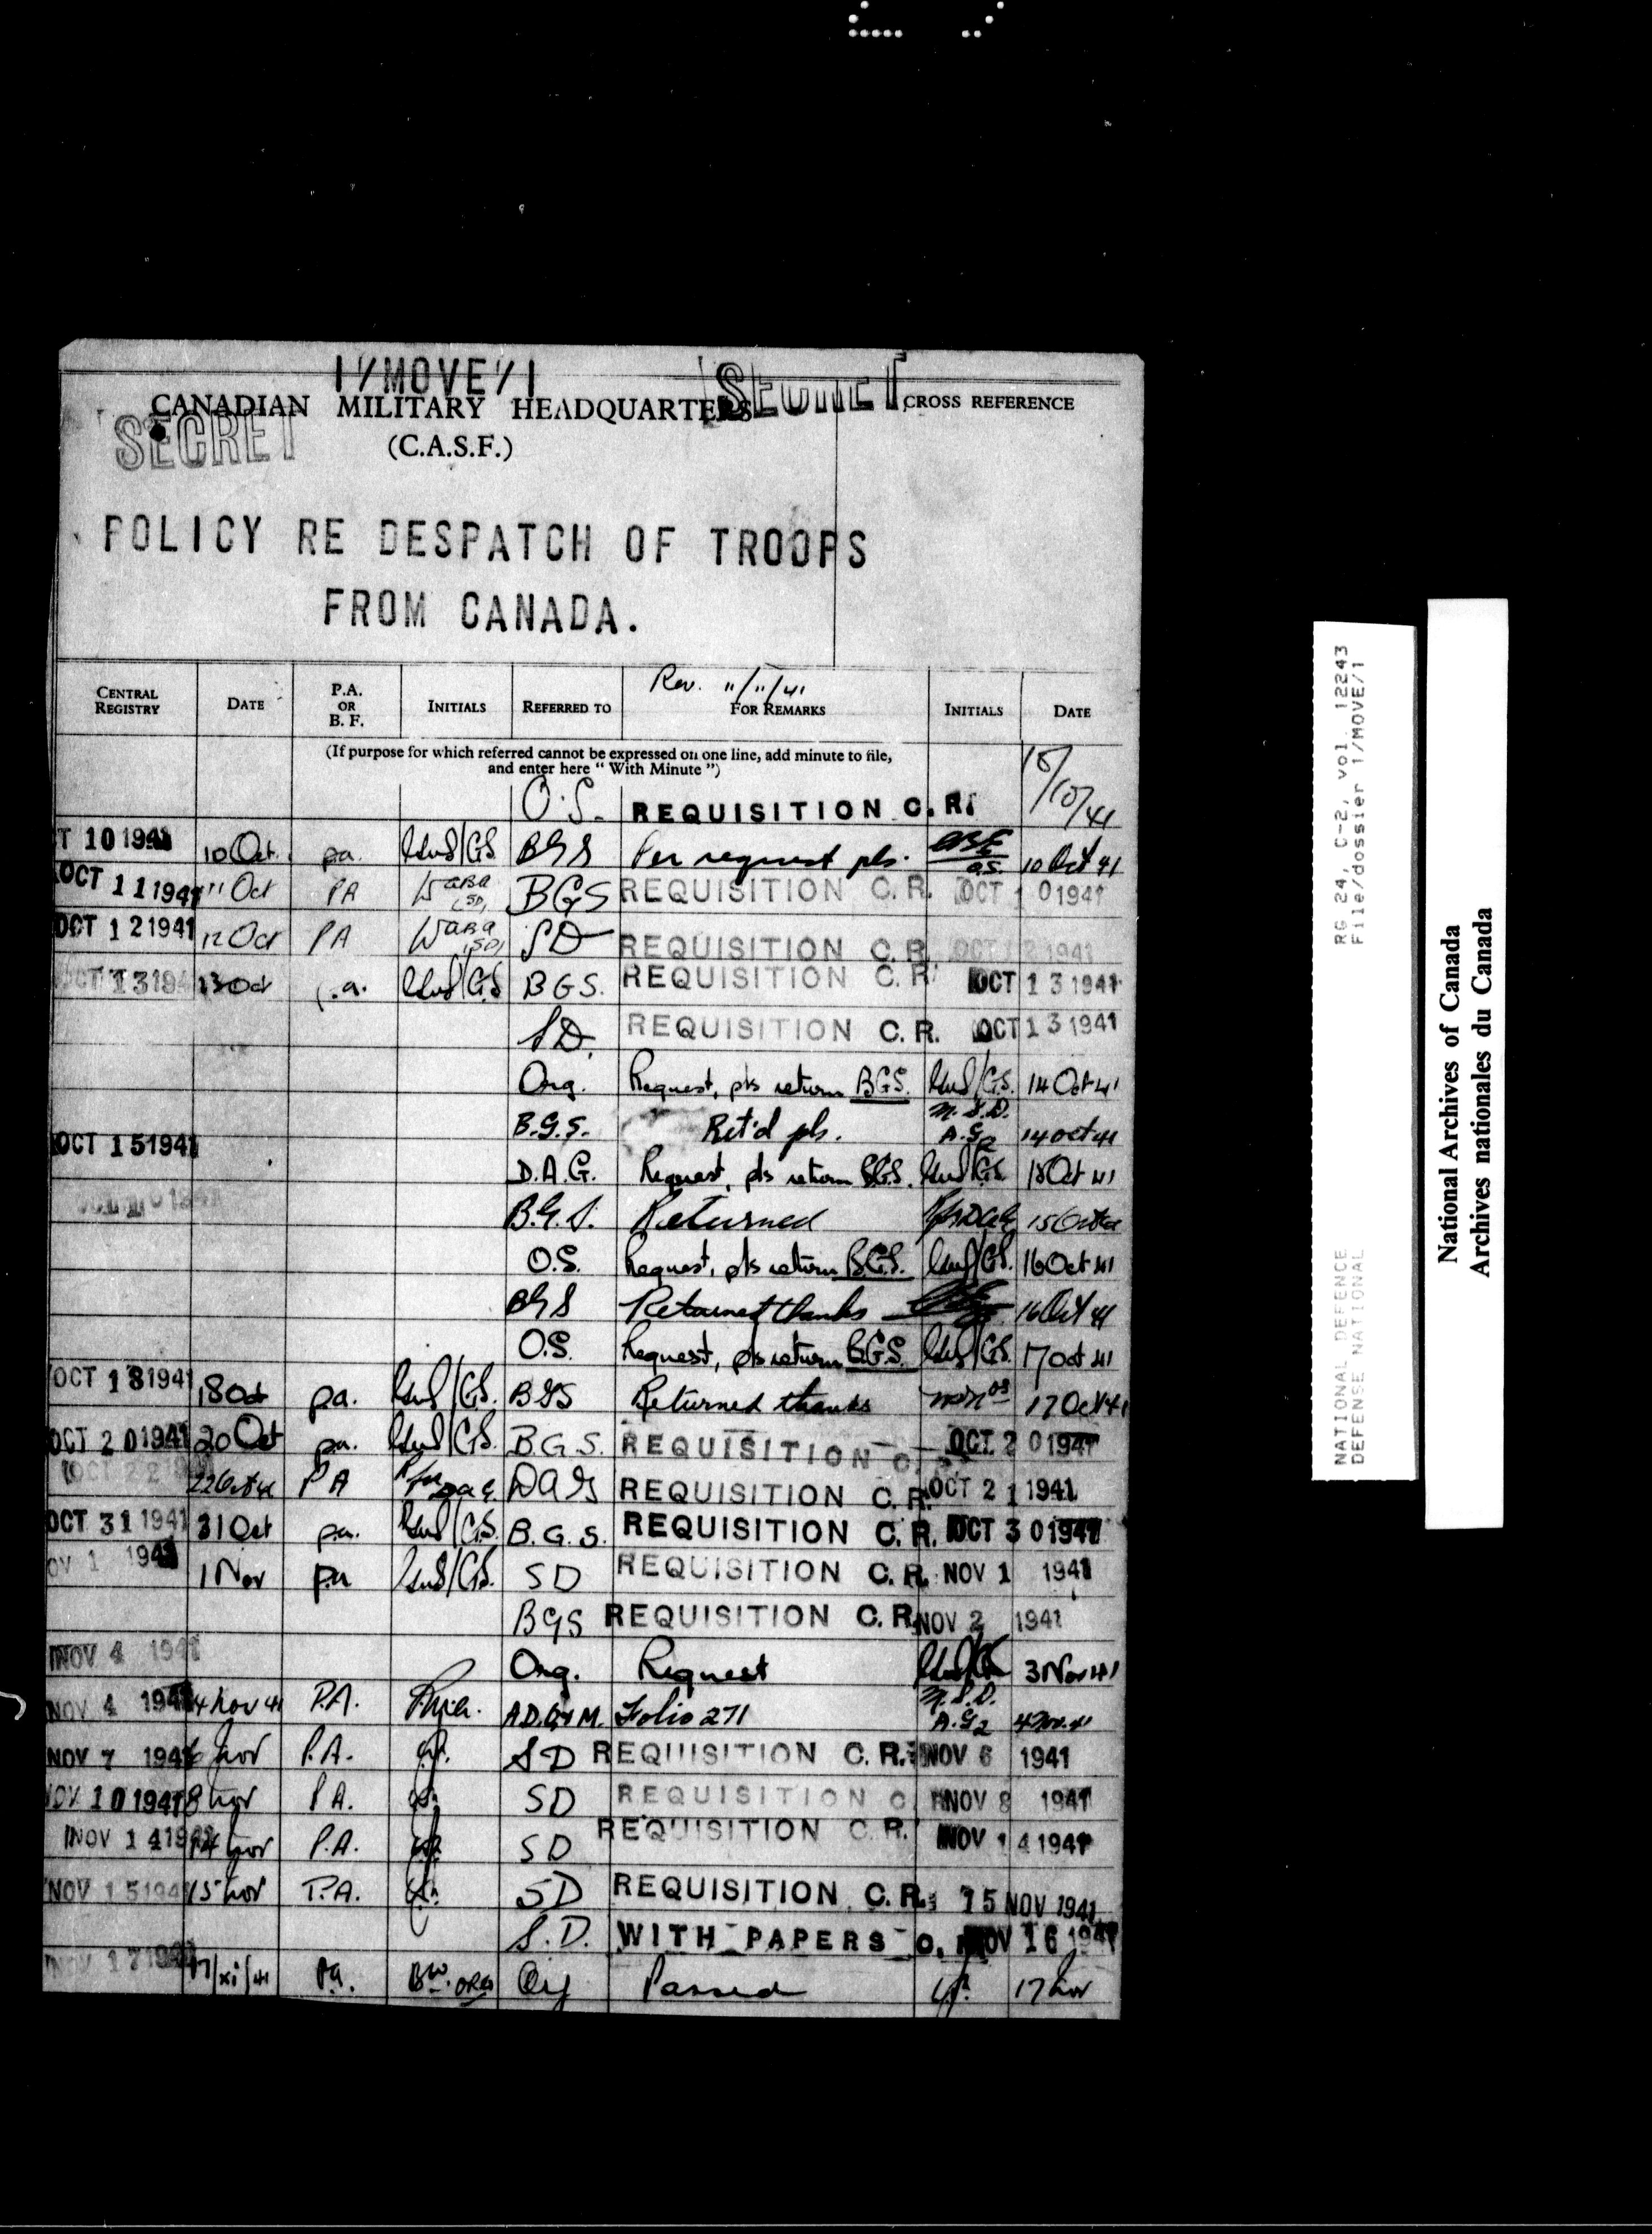 1/MOVE/1
SECRET
CANADIAN MILITARY HEADQUARTERS
CROSS REFERENCE
SECRET
(C.A.S.F.)
POLICY RE DESPATCH OF TROOPS
FROM CANADA.
Rev. 11/11/41
CENTRAL REGISTRY DATE P.A. OR B. F. INITIALS REFERRED TO FOR REMARKS INITIALS DATE
(If purpose for which referred cannot be expressed on one line, add minute to file,
and enter here " With Minute ")
O.S. REQUISITION C. R. /10/41
T 10 1941 10 Oct. pa. BGS Per request pls. O.S. 10 Oct 41
OCT 11 1941 11 Oct PA (SD) BGS REQUISITION C. R. OCT 10 1941
OCT 12 1941 12 Oct PA (SD) SD REQUISITION C. R. OCT 12 1941
OCT 13 194 13 Oct p.a. GS BGS. REQUISITION C. R. OCT 13 1941
SD. REQUISITION C. R. OCT 13 1941
Org. Request, pls return BGS. GS. 14 Oct 41
B.G.S. Ret'd pls. M.S.D. A.G2 14 Oct 41
OCT 15 1941
D.A.G. Request, pls return BGS. GS. 15 Oct 41
B.G.S. Returned 15 Oct
O.S. Request, pls return B.G.S. GS. 16 Oct 41
BGS Returned thanks 16 Oct 41
O.S. Request, pls return B.G.S. GS. 17 Oct 41
OCT 18 1941 18 Oct pa. GS. BGS Returned thanks 17 Oct 41
OCT 20 1941 20 Oct pa. GS. B.G.S. REQUISITION C. OCT 20 1941
OCT 22 22 Oct PA DAG REQUISITION C. R. OCT 21 1941
OCT 31 1941 31 Oct pa. GS. B.G.S. REQUISITION C. R. OCT 30 1941
OV 1 194 1 Nov pa GS. SD REQUISITION C. R. NOV 1 1941
BGS REQUISITION C. R. NOV 2 1941
NOV 4 1941
Org. Request 3 Nov 41
NOV 4 194 4 Nov 41 P.A. A.D. M. Folio 271 M.S.D. A.G2 4 Nov. 41
NOV 7 194 6 Nov P.A. SD REQUISITION C. R. NOV 6 1941
NOV 10 1941 8 Nov PA. SD REQUISITION C. NOV 8 1941
NOV 14 19 14 Nov P.A. SD REQUISITION C. R. NOV 14 1941
NOV 15 194 15 Nov P.A. SD REQUISITION C. R. 15 NOV 1941
S.D. WITH PAPERS C. NOV 16 194
NOV 17 194 17/xi/41 Pa. Org Passed 17 Nov
RG 24, C-2, vol. 12243
File/dossier 1/MOVE/1
NATIONAL DEFENCE
DEFENSE NATIONAL
National Archives of Canada
Archives nationales du Canada